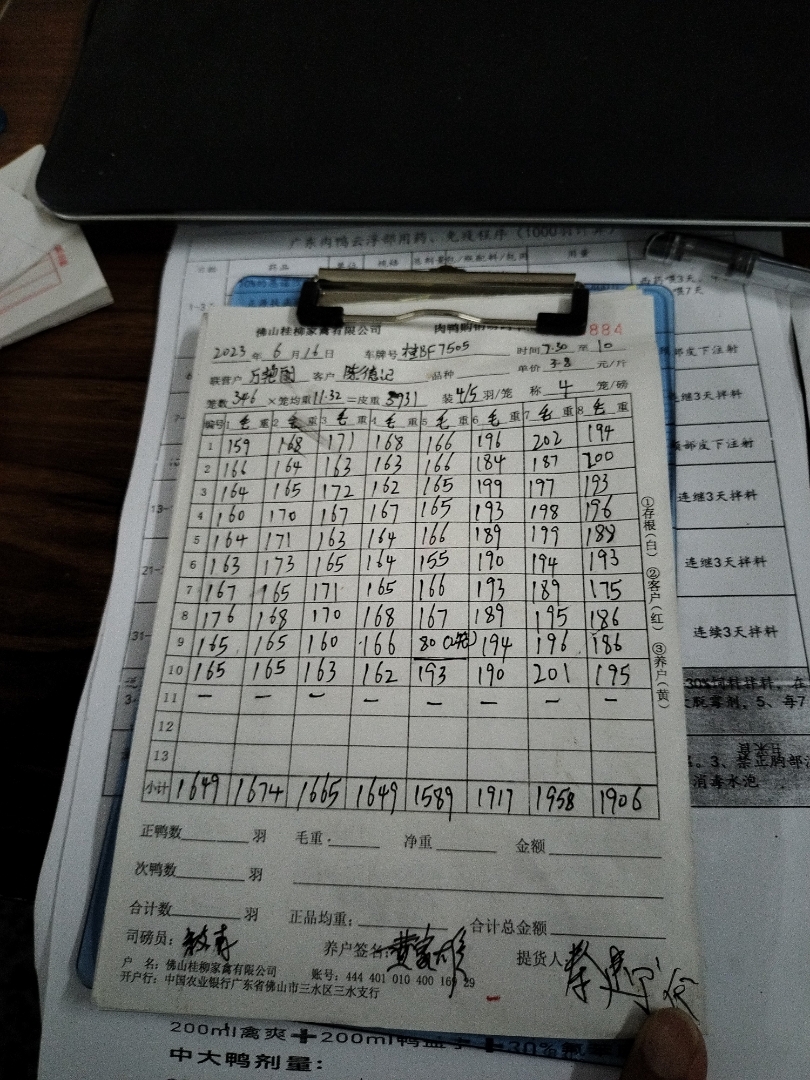 广东肉鸭云浮部用药、免疫程序(1000羽计算)
药品 单位 规格 用量
佛山桂柳家禽有限公司 肉鸭购销 884
2023年6月16日 车牌号 桂BF7505 时间7:30至10
联营户 客户 陈德记 品种 单价 3.8 元/斤
笼数346×笼均重11.32=皮重3931 装4/5羽/笼 称4笼/磅
编号 1毛重 2毛重 3毛重 4毛重 5毛重 6毛重 7毛重 8毛重
1 159 168 171 168 166 196 202 194
2 166 164 163 163 166 184 187 200
3 164 165 172 162 165 199 197 193
4 160 170 167 167 165 193 198 196
5 164 171 163 164 166 189 199 188
6 163 173 165 164 155 190 194 193
7 167 165 171 165 166 193 189 175
8 176 168 170 168 167 189 195 186
9 165 165 160 166 80(2笼) 194 196 186
10 165 165 163 162 193 190 201 195
11 — — — — — — — —
12
13
小计 1649 1674 1665 1649 1589 1917 1958 1906
①存根(白) ②客户(红) ③养户(黄)
正鸭数 羽 毛重: 净重 金额
次鸭数 羽
合计数 羽 正品均重: 合计总金额
司磅员: 养户签名: 黄富雄 提货人
户 名:佛山桂柳家禽有限公司 账号:444 401 010 400 169 29
开户行:中国农业银行广东省佛山市三水区三水支行
颈部皮下注射
连继3天拌料
颈部皮下注射
连继3天拌料
连继3天拌料
连续3天拌料
30%饲料拌料,在
脱霉剂,5、每7
3、禁止胸部
消毒水泡
200ml禽爽+200ml鸭
中大鸭剂量: